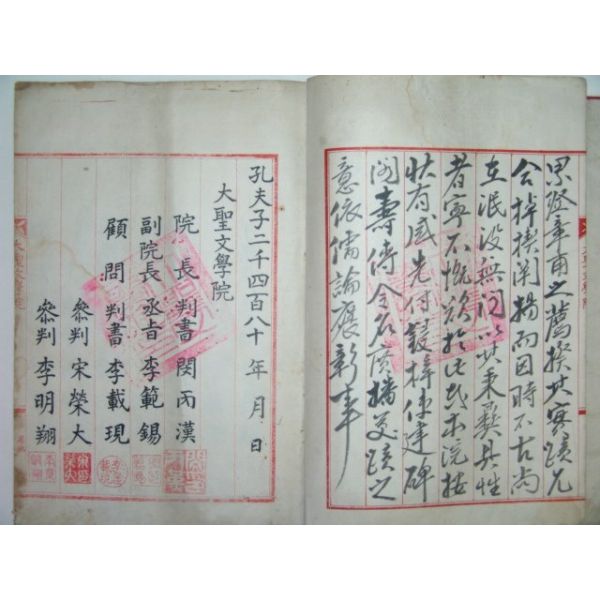 累登章甫之薦揆其實蹟允
合棹楔闡揚而因時不古尚
在泯没無聞以其秉彝具性
者寧不慨歎於此哉本院接
狀有感先付鋟梓傳建碑
閣壽傳令名廣播芳蹟之
意依儒論褒彰事
孔夫子二千四百八十 年 月 日
大聖文學院
院長 判書 閔丙漢
副院長 丞旨 李範錫
顧問 判書 李載現
叅判 宋榮大
叅判 李明翔